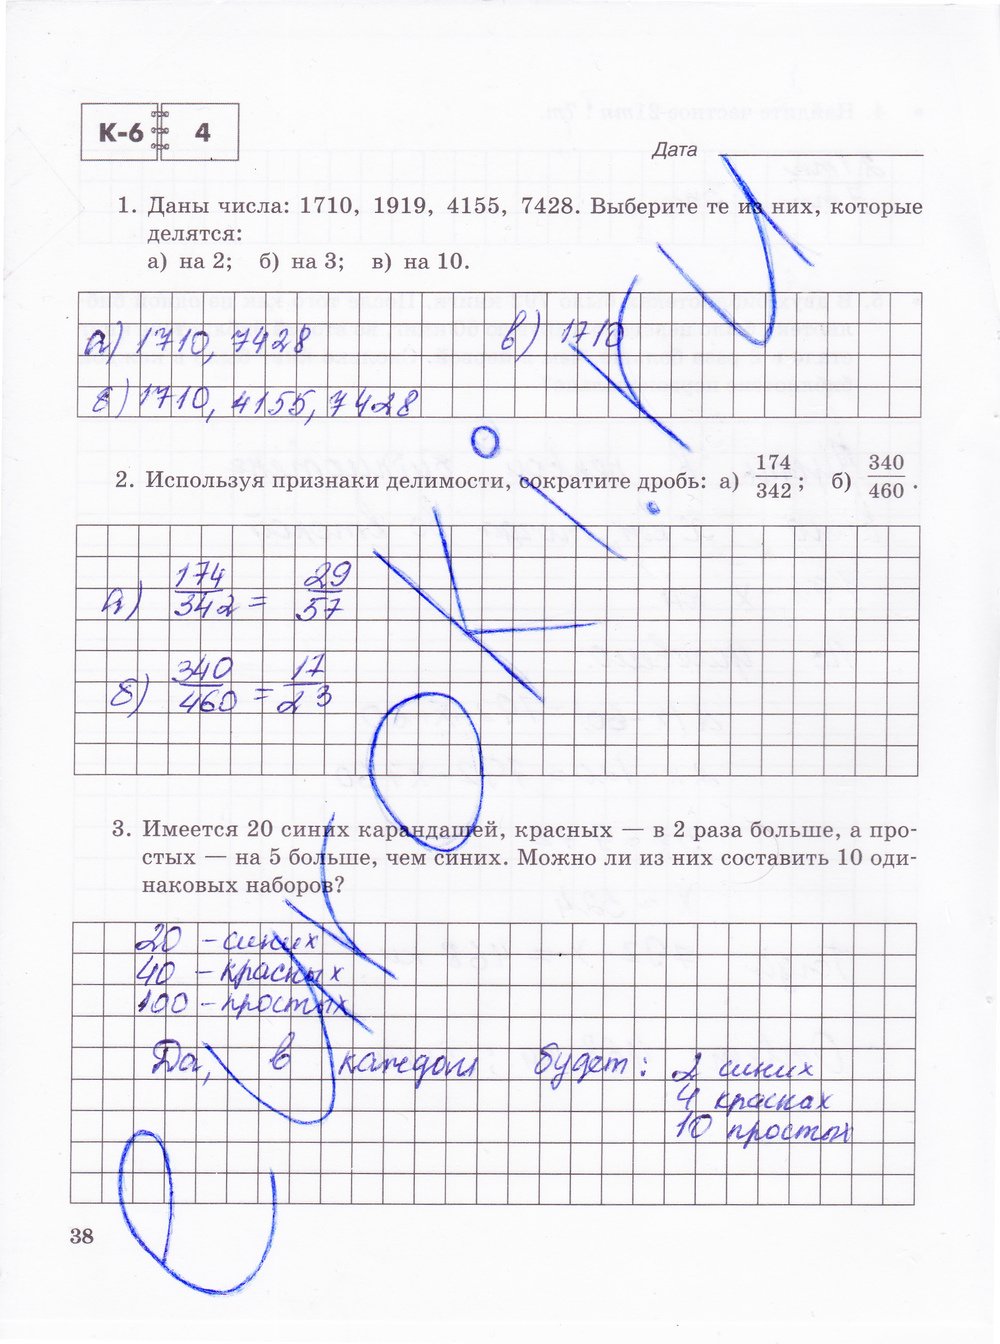 К-6 4
Дата
1. Даны числа: 1710, 1919, 4155, 7428. Выберите те из них, которые
делятся:
а) на 2; б) на 3; в) на 10.
а) 1710, 7428 в) 1710
б) 1710, 4155, 7428
2. Используя признаки делимости, сократите дробь: а) 174/342; б) 340/460.
а) 174/342 = 29/57
б) 340/460 = 17/23
3. Имеется 20 синих карандашей, красных — в 2 раза больше, а про-
стых — на 5 больше, чем синих. Можно ли из них составить 10 оди-
наковых наборов?
20 - синих
40 - красных
100 - простых
Да, в каждом будет: 2 синих
4 красных
10 простых
38